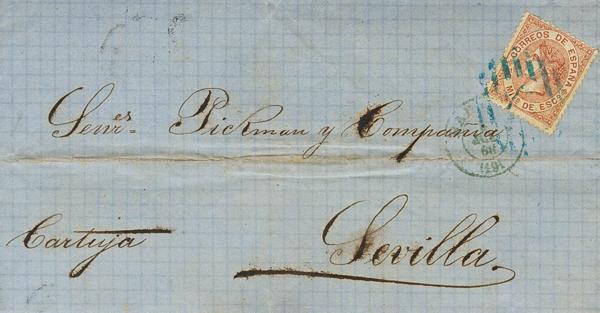 CORREOS DE ESPAÑA
MIL. DE. ESCO
Senres. Pickman y Compania
Cartuja
Sevilla.
(49)